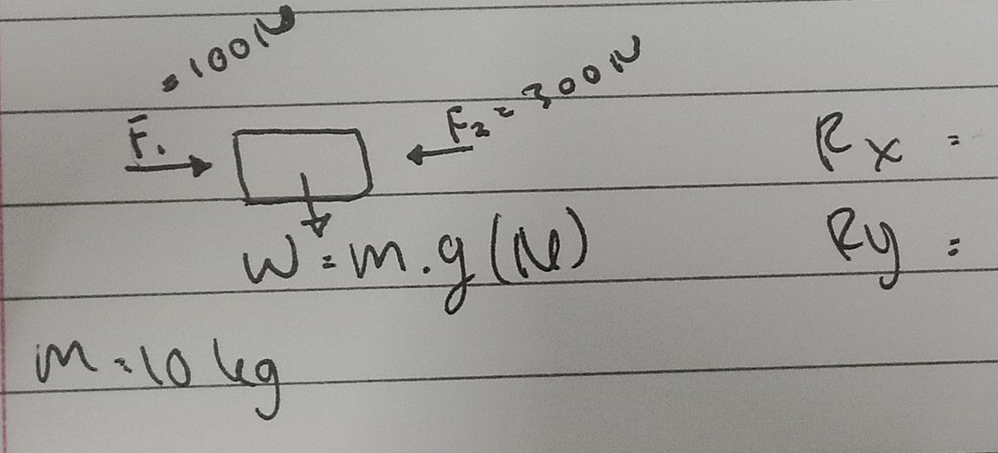 = 100N
F₁
F₂ = 300N
Rx =
W = m.g (N)
Ry =
m = 10 kg